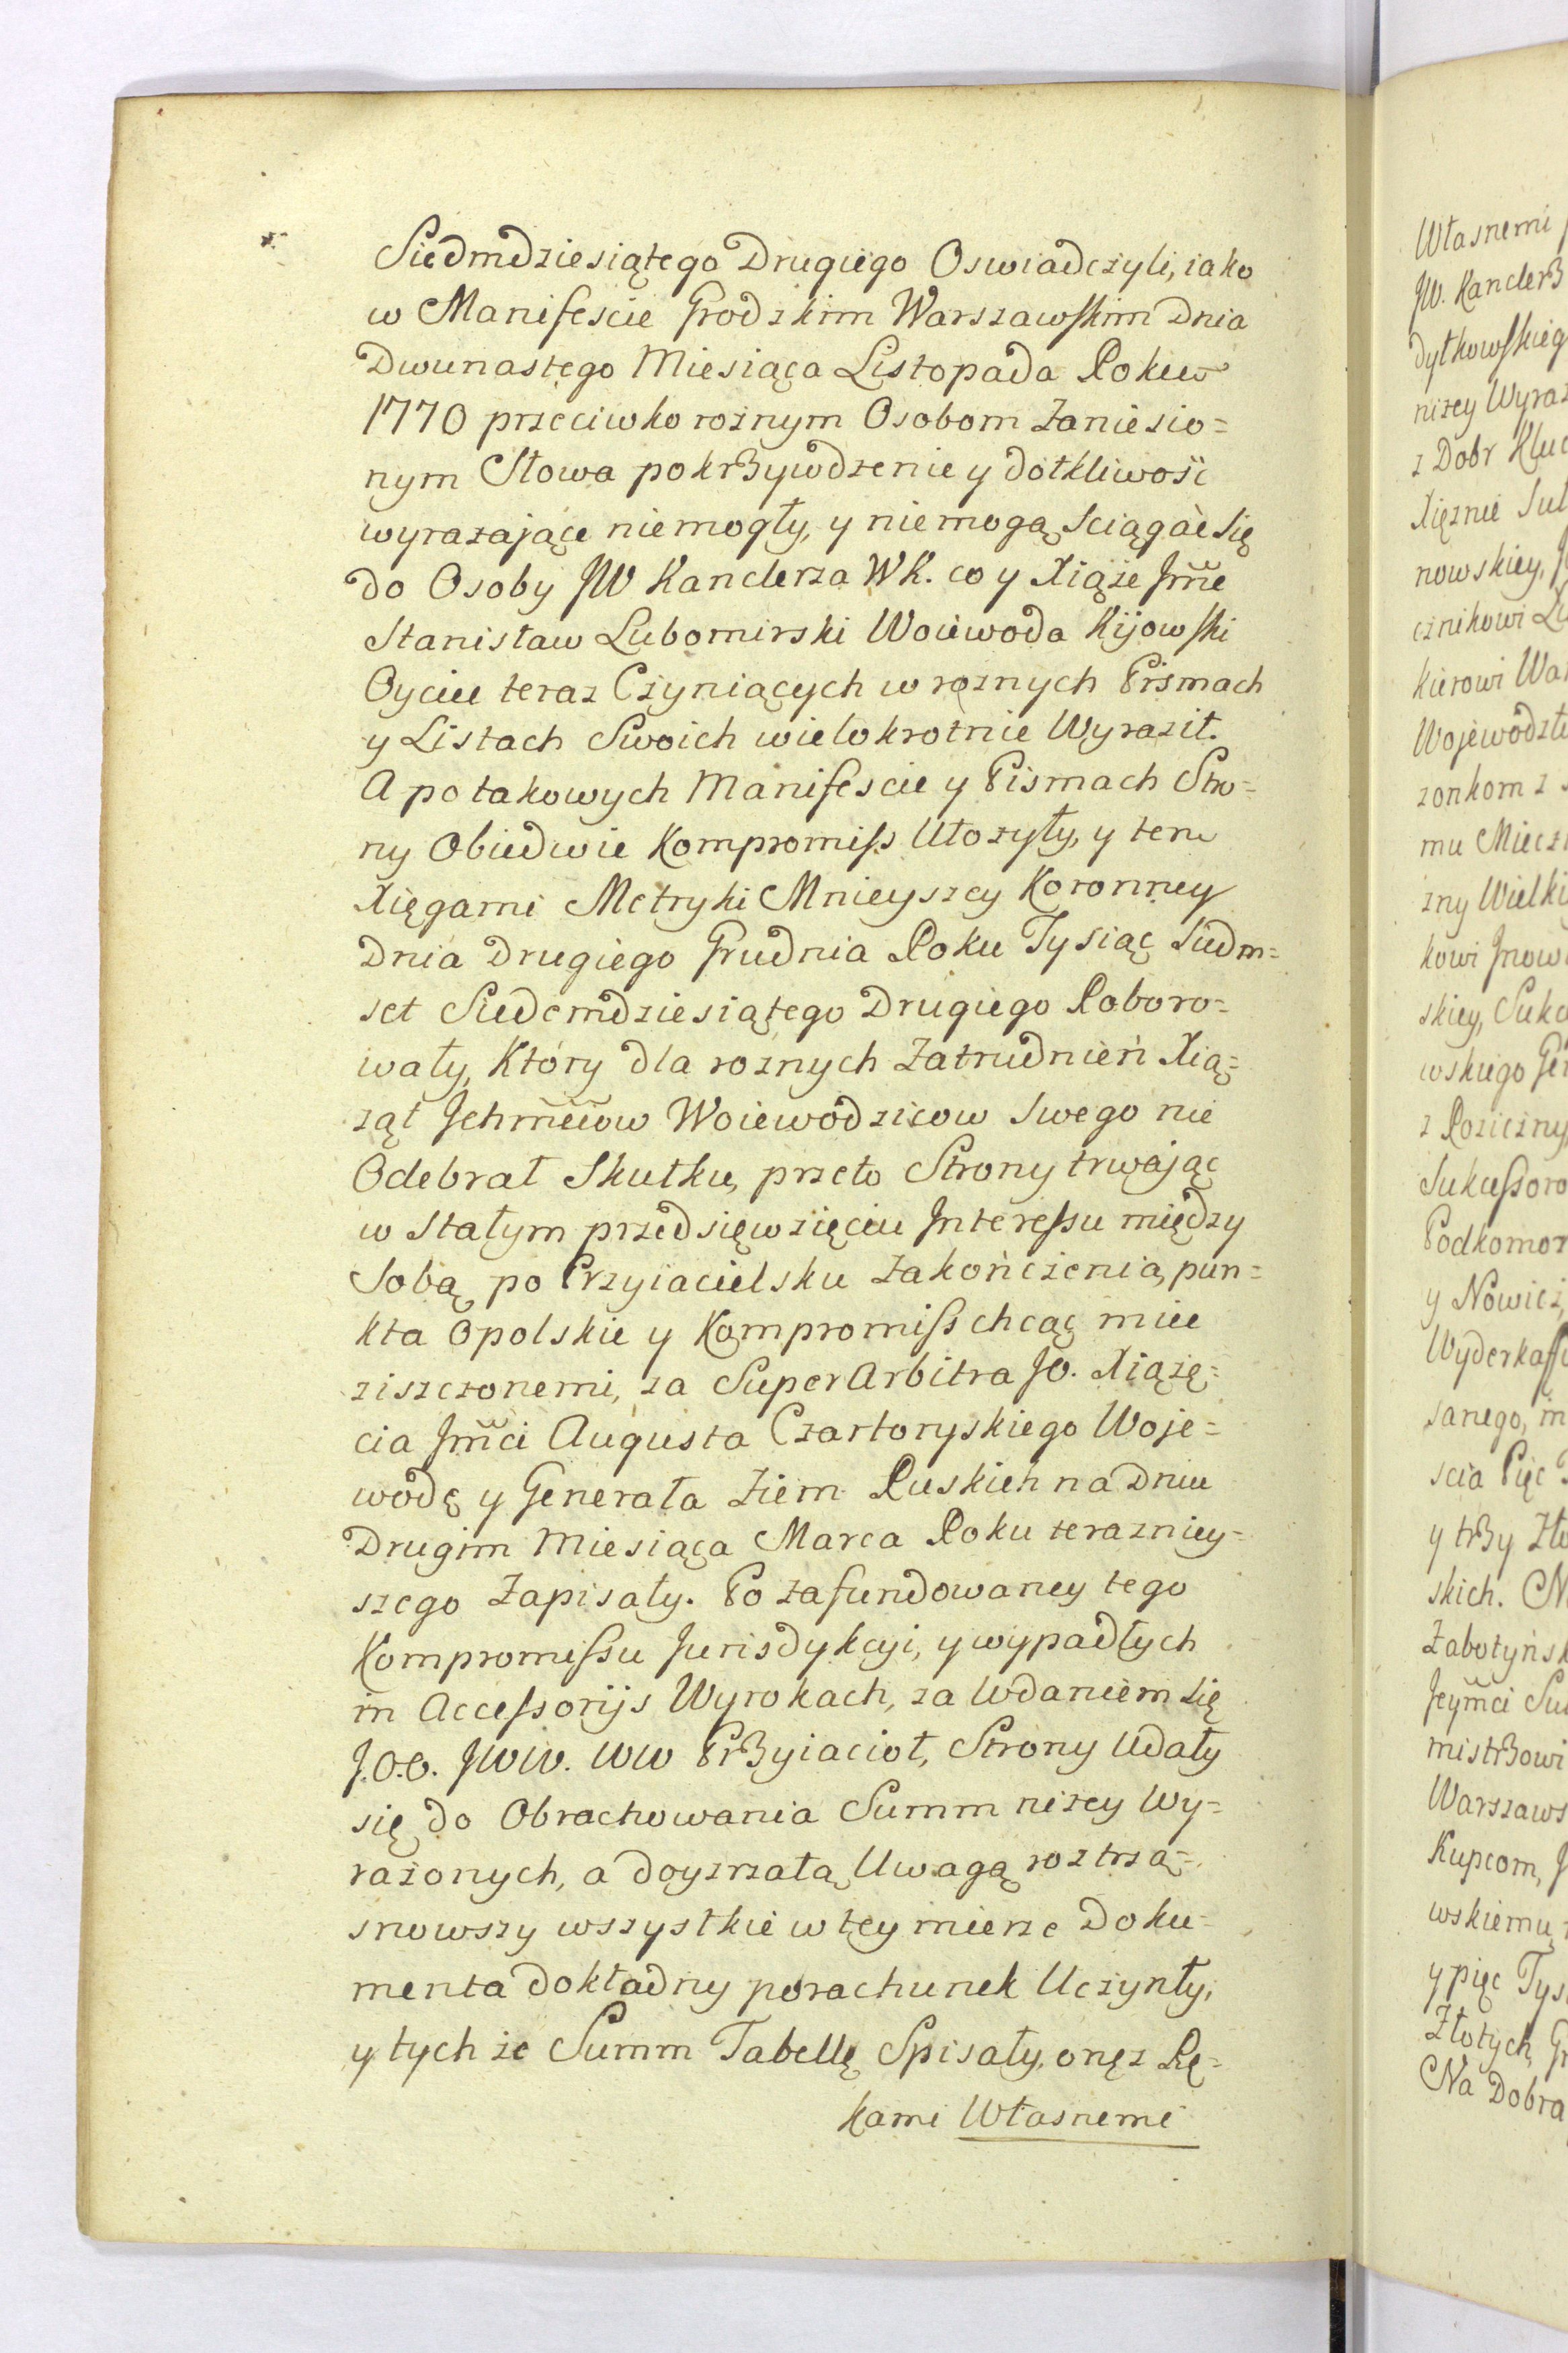 Siedmdziesiątego Drugiego Oswiadczyli, iako
w Manifescie Grodzkim Warszawskim Dnia
Dwunastego Miesiąca Listopada Roku
1770 przeciwko roznym Osobom Zaniesio=
nym Słowa pokrzywdzenie y dotkliwość
wyrazające niemogły, y niemogą sciągać się
do Osoby JW Kanclerza WK. co y Xiąże Jmć
Stanisław Lubomirski Woiewoda Kijowski
Oyciec teraz Czyniących w roznych Pismach
y Listach Swoich wielokrotnie Wyraził.
A po takowych Manifescie y Pismach Stro=
ny Obiedwie Kompromiss Ułozyły, y ten
Xięgami Metryki Mnieyszey Koronney
Dnia Drugiego Grudnia Roku Tysiąc Siedm=
set Siedemdziesiątego Drugiego Roboro=
wały, Który dla roznych Zatrudnień Xią=
ząt Jchmciow Woiewodzicow Swego nie
Odebrał Skutku, przeto Strony trwając
w Stałym przedsięwzięciu Interessu między
Sobą po Przyiacielsku Zakończenia, pun=
kta Opolskie y Kompromiss chcąc miec
ziszczonemi, za SuperArbitra JO. Xiązę=
cia Jmci Augusta Czartoryskiego Woje=
wodę y Generała Ziem Ruskich na Dniu
Drugim Miesiąca Marca Roku terazniey=
szego Zapisały. Po Zafundowaney tego
Kompromissu Jurisdykcyi, y wypadłych
in Accessorijs Wyrokach, za Wdaniem się
J.O.O. JWW. WW Przyiacioł, Strony Udały
się do Obrachowania Summ nizey Wy=
rażonych, a doyzrzałą Uwagą roztrzą=
snowszy wszystkie w tey mierze Doku=
menta dokładny porachunek Uczynły,
y tych że Summ Tabellę Spisały, onęz Rę=
kami Własnemi
Własnemi
JW. Kanclerz
dytkowskieg
nizey Wyraz
z Dobr Kluc
Xięznie Sul
nowskiey,
cznikowi
kierowi War
Wojewodzt
zonkom z
mu Miecz
zny Wielki
kowi Jnow
skiey, Sukc
wskiego Ge
z Roziczny
Sukcessoro
Podkomor
y Nowicz
Wyderkaff
sanego, in
scia Pięc
y trzy Zło
skich.
Zabotyńsk
Jeymci Su
mistrzowi
Warszaws
Kupcom,
wskiemu
y pięc Tys
Złotych, Gr
Na Dobra